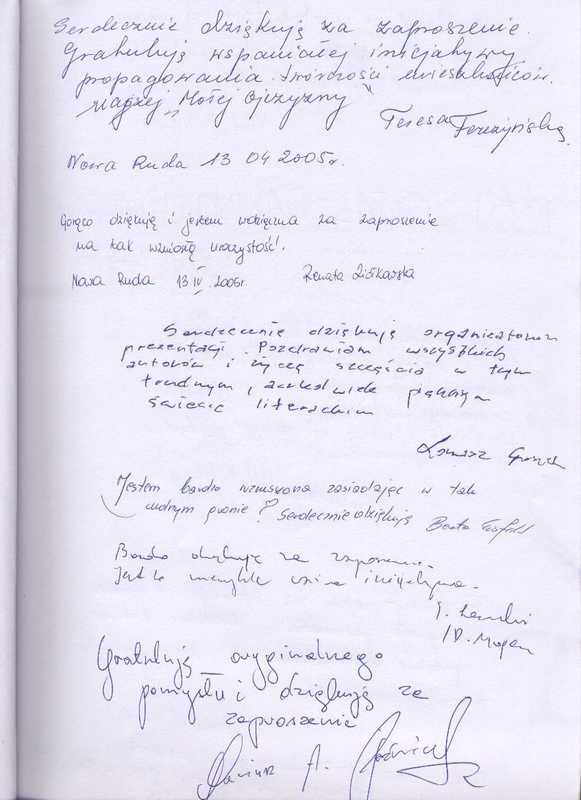 Serdecznie dziękuję za zaproszenie.
Gratuluję wspaniałej inicjatywy
propagowania twórczości mieszkańców
naszej „Małej Ojczyzny”
Teresa
Nowa Ruda 13 04 2005r.
Gorąco dziękuję i jestem wdzięczna za zaproszenie
na tak wzniosłą uroczystość!
Nowa Ruda 13 IV 2005r. Renata
Serdecznie dziękuję organizatorom
prezentacji. Pozdrawiam wszystkich
autorów i życzę szczęścia w tym
trudnym, aczkolwiek pięknym
świecie literackim
Tomasz
Jestem bardzo wzruszona zasiadając w tak
cudnym gronie! Serdecznie dziękuję Beata
Bardzo dziękuję za zaproszenie.
Jest to niezwykle inicjatywa.
Gratuluję oryginalnego
pomysłu i dziękuję za
zaproszenie
Dariusz A.